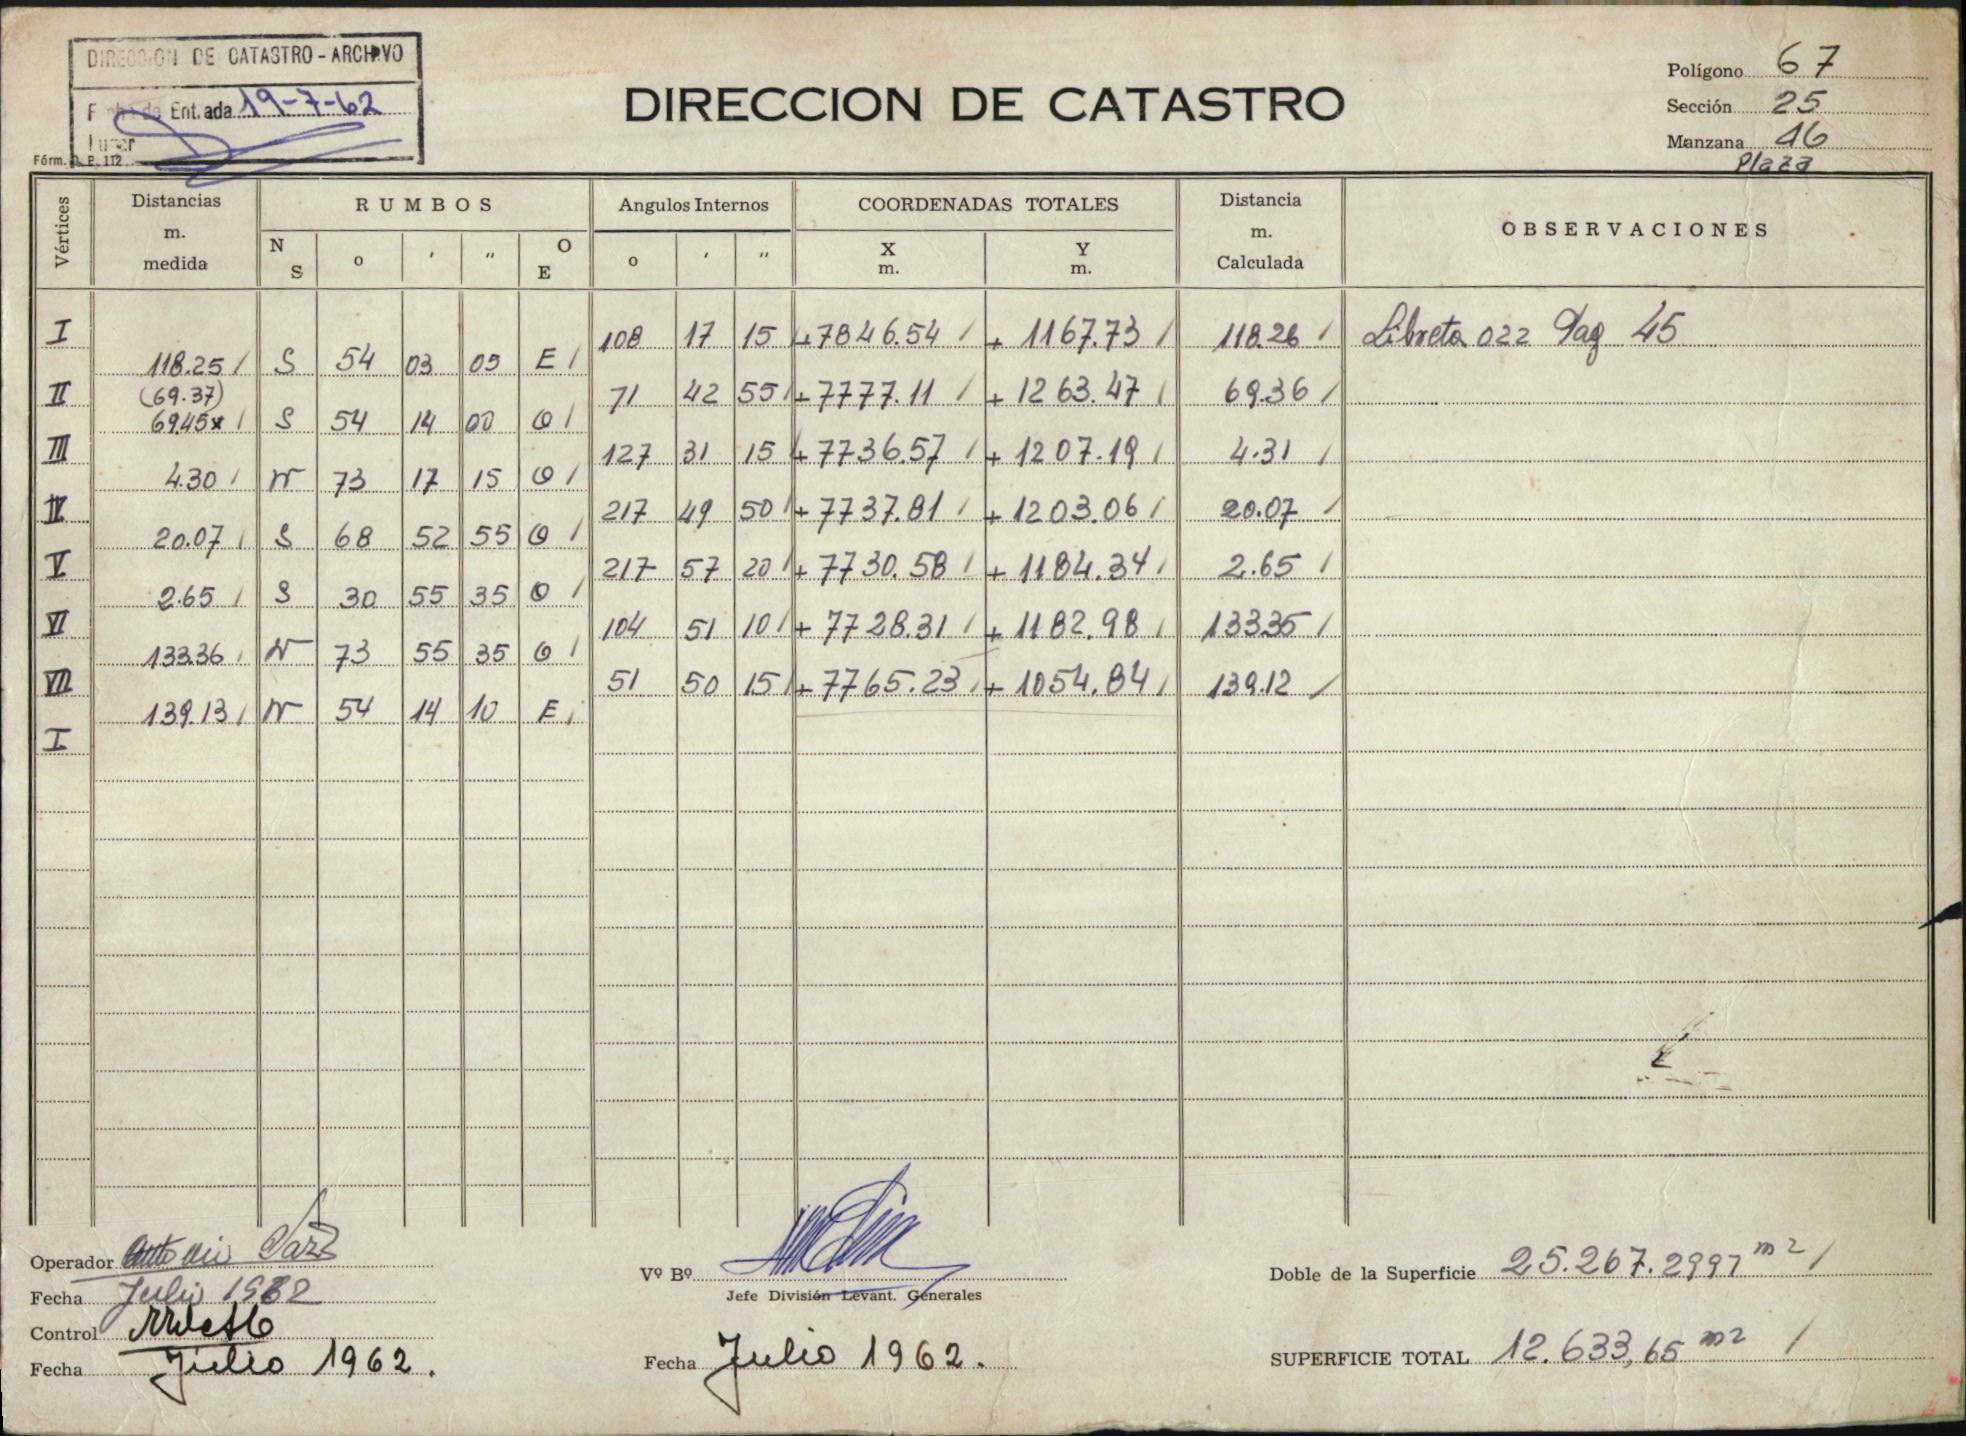 DIRECCION DE CATASTRO - ARCHIVO
Fecha de Entrada 19-7-62
Lugar
Fórm. D. P. 112
DIRECCION DE CATASTRO
Polígono 67
Sección 25
Manzana 46
Plaza
Vértices Distancias m. medida RUMBOS Angulos Internos COORDENADAS TOTALES Distancia m. Calculada OBSERVACIONES
N S o ' " O E o ' " X m. Y m.
I 108 17 15 +7846.54 / + 1167.73 / 118.26 / Libreta 022 Pag 45
118.25 / S 54 03 05 E /
II (69.37) 71 42 55 / +7777.11 / + 1263.47 / 69.36 /
69.45x / S 54 14 00 O /
III 127 31 15 +7736.57 / + 1207.19 / 4.31 /
4.30 / N 73 17 15 O /
IV 217 49 50 / +7737.81 / +1203.06 / 20.07 /
20.07 / S 68 52 55 O /
V 217 57 20 / +7730.58 / + 1184.34 / 2.65 /
2.65 / S 30 55 35 O /
VI 104 51 10 / + 7728.31 / + 1182.98 / 133.35 /
133.36 / N 73 55 35 O /
VII 51 50 15 / +7765.23 / + 1054.84 / 139.12 /
139.13 / N 54 14 10 E /
I
Operador Antonio
Fecha Julio 1962
Control
Fecha Julio 1962.
Vº Bº
Jefe División Levant. Generales
Fecha Julio 1962.
Doble de la Superficie 25.267.2997 m2 /
SUPERFICIE TOTAL 12.633,65 m2 /